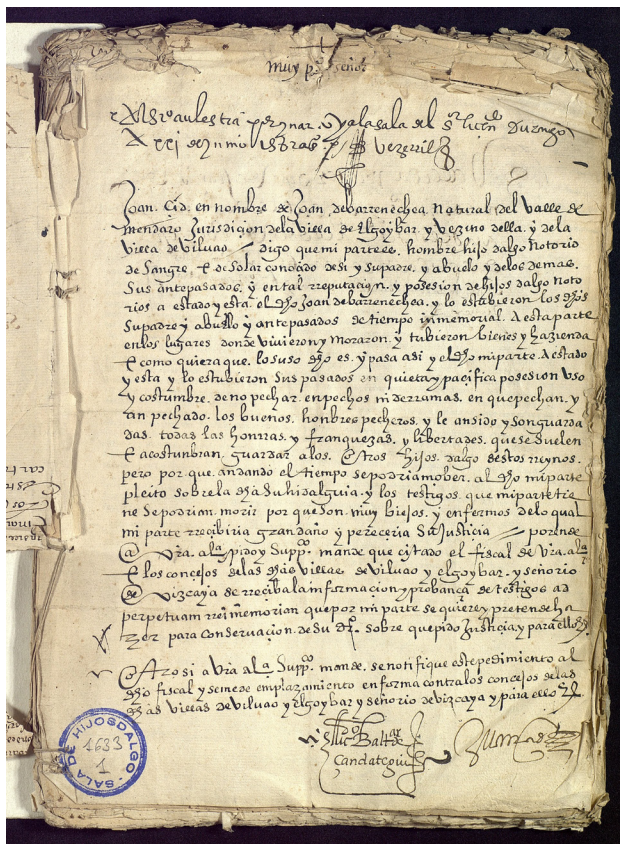 muy p.º señor
por ynar
Joan. Cid. en nombre de Joan debarrenechea. Natural del Valle de
mendaro Jurisdiçion dela Villa de Elgoybar. y Vezino della. y dela
Villa de Viluao digo que mi parte es. hombre hijo dalgo Notorio
de Sangre. E de Solar conoçido de si y Supadre. y abuelo y delos demas.
Sus antepasados. y en tal rreputaçion. y posesion de hijos dalgo Noto
rios a estado y esta. el dho Joan debarrenechea. y lo estubieron los dhos
Supadre y abuelo y antepasados de tiempo inmemorial. A esta parte
en los lugares donde Vivieron y Moraron. y tubieron bienes y hazienda
E como quiera que. lo suso dho es. y pasa asi y el dho mi parte. A estado
y esta y lo estubieron Sus pasados en quieta y paçifica posesion Uso
y costumbre. de no pechar. en pechos ni derramas. en que pechan. y
an pechado. los buenos. honbres pecheros. y le an sido y son guarda
das. todas las honrras. y franquezas. y libertades. que se suelen
E acostunbran. guardar a los. Otros hijos. dalgo destos rreynos.
pero por que. andando el tiempo se podria mober. al dho mi parte
pleito sobre la dha Su hidalguia. y los testigos. que mi parte tie
ne se podrian. morir por que son. muy biejos. y enfermos de lo qual
mi parte rreçibiria gran daño y pereçeria Su Justiçia por ende
A Vra. alª pido y Suppco. mande que çitado el fiscal de Vra. alª
E los conçejos de las dhas Villas de Viluao y elgoybar. y señorio
de Vizcaya se rreçiba la informaçion y probança de testigos ad
perpetuam rrei memorian que por mi parte se quiere y pretende ha
zer para conservaçion. de su drº. sobre que pido Justiçia y para ello
Otrosi a Vra alª Suppco mande. se notifique este pedimiento al
dho fiscal y se me de emplazamiento en forma contra los conçejos de las
dhas Villas de Viluao y Elgoybar y señorio de vizcaya y para ello
SALA DE HIJOSDALGO
1633
1